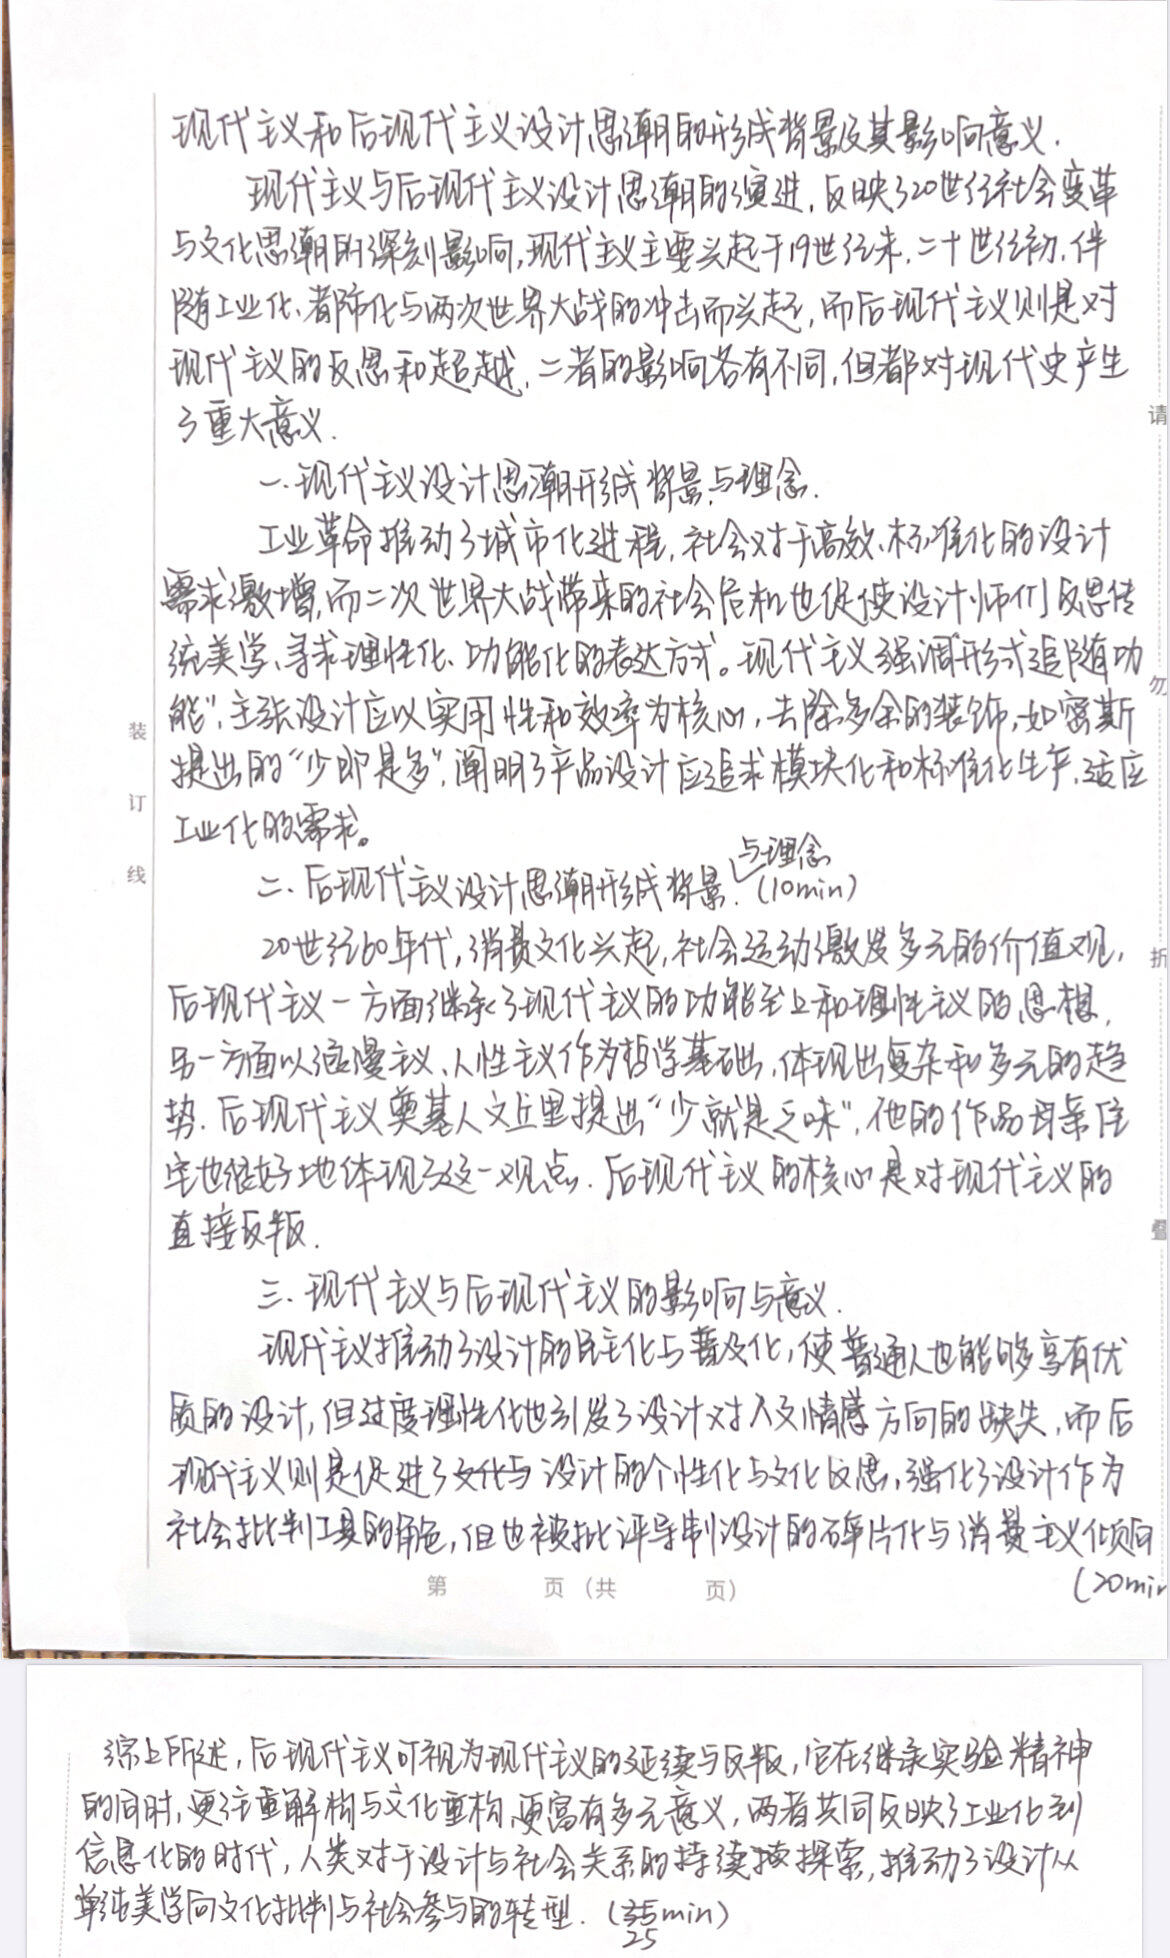 现代主义和后现代主义设计思潮的形成背景及其影响意义.
现代主义与后现代主义设计思潮的演进,反映了20世纪社会变革
与文化思潮的深刻影响,现代主义主要兴起于19世纪末.二十世纪初.伴
随工业化、都市化与两次世界大战的冲击而兴起,而后现代主义则是对
现代主义的反思和超越,二者的影响各有不同,但都对现代史产生
了重大意义.
一.现代主义设计思潮形成背景与理念.
工业革命推动了城市化进程,社会对于高效、标准化的设计
需求激增,而二次世界大战带来的社会危机也促使设计师们反思传
统美学、寻求理性化、功能化的表达方式。现代主义强调"形式追随功
能",主张设计应以实用性和效率为核心,去除多余的装饰,如密斯
提出的"少即是多",阐明了产品设计应追求模块化和标准化生产,适应
工业化的需求。
与理念
二.后现代主义设计思潮形成背景.(10min)
20世纪60年代,消费文化兴起,社会运动激发多元的价值观,
后现代主义一方面继承了现代主义的功能至上和理性主义的思想,
另一方面以浪漫主义、人性主义作为哲学基础,体现出复杂和多元的趋
势.后现代主义奠基人文丘里提出"少就是乏味",他的作品母亲住
宅也很好地体现了这一观点.后现代主义的核心是对现代主义的
直接反叛.
三.现代主义与后现代主义的影响与意义.
现代主义推动了设计的民主化与普及化,使普通人也能够享有优
质的设计,但过度理性化也引发了设计对人文情感方向的缺失,而后
现代主义则是促进了文化与设计的个性化与文化反思,强化了设计作为
社会批判工具的角色,但也被批评导制设计的碎片化与消费主义倾向
(20min
综上所述,后现代主义可视为现代主义的延续与反叛,它在继承实验精神
的同时,更注重解构与文化重构,更富有多元意义,两者共同反映了工业化到
信息化的时代,人类对于设计与社会关系的持续探索,推动了设计从
单纯美学向文化批判与社会参与的转型.(35min)
25
装
订
线
请
勿
折
叠
第 页(共 页)